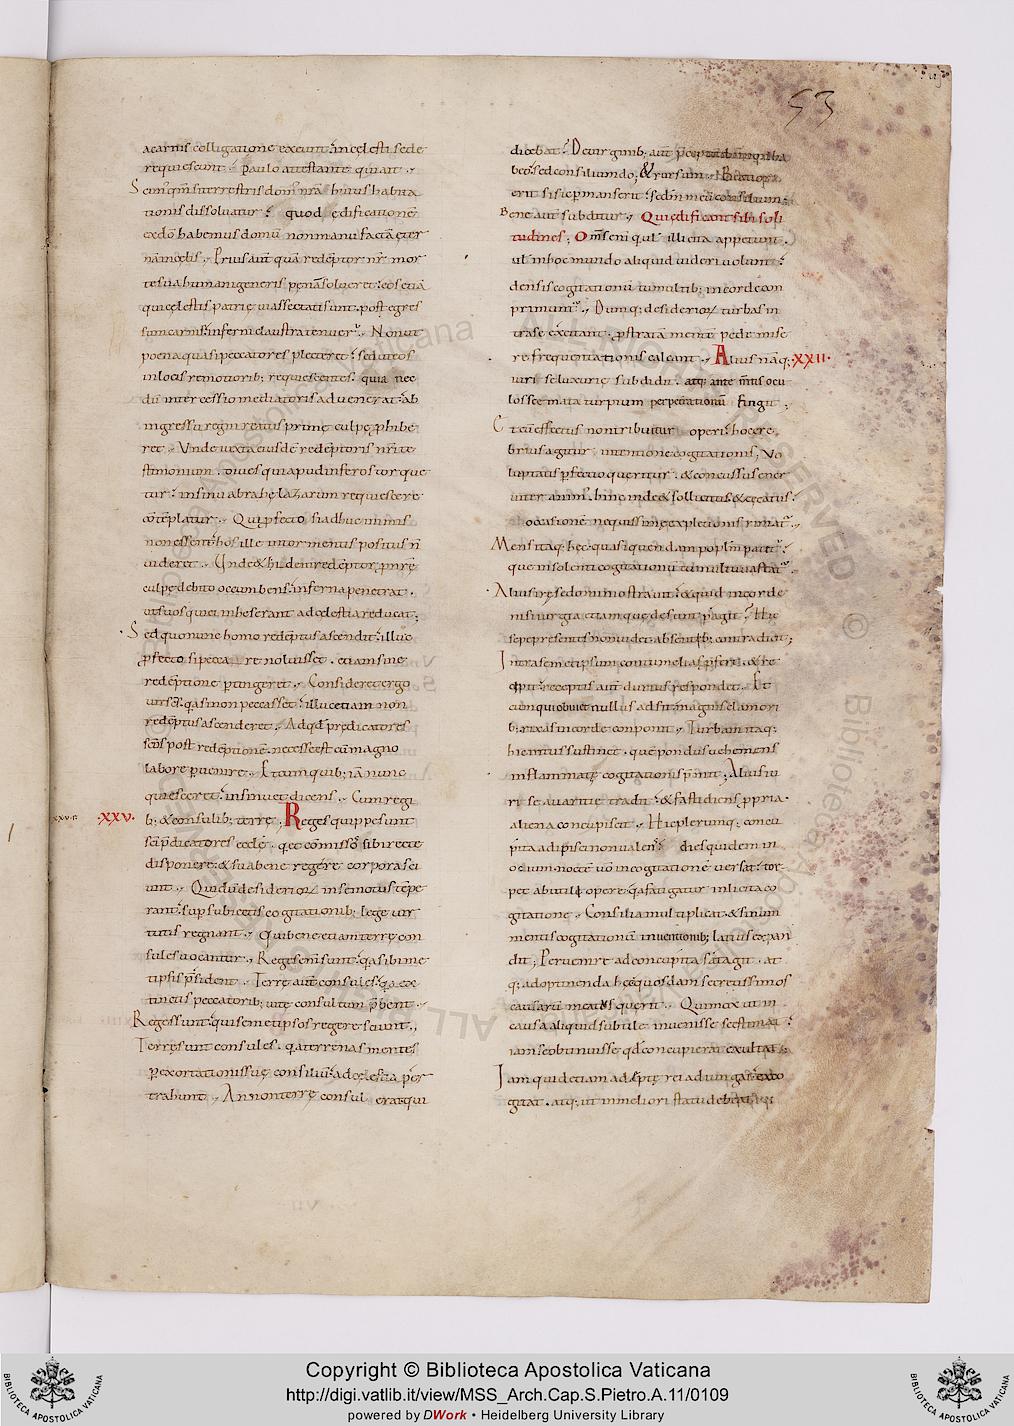 53
a carnis colligatione exeunt. in cęlesti sede
requiescunt. Paulo attestante qui ait.
Scimus qm̄ si terrestris dom' nr̄a huius habita
tionis dissoluatur. quod ędificationē
ex dō habemus domū non manu factā ęter
nā in cęlis. Prius aut quā redēptor nr̄ mor
te sua humani generis pęnā solueret. eos etiā
qui cęlestis patrię uias sectati sunt. post egres
sum carnis. inferni claustra tenuer̄. Non ut
poena quasi peccatores plecteret. sed ut eos
in locis remotiorib; requiescentes. quia nec
dū intercessio mediatoris aduenerat. ab
ingressu regni reatus primę culpę phibe
ret. Unde iuxta eiusdē redēptoris nr̄i te
stimonium. diues qui apud inferos torque
tur. in sinu abrahę lazarum requiescere
cōtēplatur. Qui pfecto si adhuc in imis
non essent. hos ille in tormentis positus n̄
uideret. Unde & hi dem redēptor p nr̄ę
culpę debito occumbens. inferna penetrat.
ut suos qui ei inheserant ad cęlestia reducat;
Sed quo nunc homo redēptus ascendit. illuc
pfecto si peccare noluisset. etiam sine
redēptione ptingeret. Consideret ergo
uir scs. qa si non peccasset. illuc etiam non
redēptus ascenderet. Ad qd prędicatores
scōs post redēptionē. necesse est cū magno
labore puenire. Et cum quib; iā nunc
quiesceret. insinuet dicens. Cum regi
XXV. b; & consulib; terrę; Reges quippe sunt
sci pdicatores ecclę. q et cōmissos sibi recte
disponere. & sua bene regere corpora sci
unt. Qui dū desiderioꝝ in se motus tēpe
rant. sup subiectis cogitationib; lege uir
tutis regnant. Qui bene etiam terrę con
sules uocantur. Reges enī sunt. qa sibimet
ipsis psident. Terrę aut consules. qa ex
tinctis peccatorib; uitę consultum pbent.
Reges sunt. qui semetipsos regere sciunt.
Terrę sunt consules. qa terrenas mentes
p exhortationis suę consiliū. ad cęlestia per
trahunt. An non terrę consul erat qui
dicebat. De uirginib; aut pceptum
beo. sed consilium do; & rursum. Beatior
erit si sic pmanserit. sedm meū consilium;
Bene aut subditur. Qui ędificant sibi soli
tudines; Om̄s enī qui ul illicita appetunt.
ul in hoc mundo aliquid uideri uolunt.
densis cogitationū tumultib; in corde con
primunt. Dumq; desiderioꝝ turbas in
tra se excitant. pstratā mentē pede mise
re frequentationis calcant. Alius nāq; XXII.
iuri se luxurię subdidit. atq; ante mtis ocu
los scemata turpium perpetrationū fingit;
Et cū effectus non tribuitur operis. hoc cre
brius agitur intentione cogitationis; Uo
luptatis pfectio queritur. & concussus ener
uiter anim'. hinc inde & sollicitus & cęcatus.
occasionē nequissimę expletionis rimat.
Mens itaq; hęc quasi quendam popłm patit.
que insolenti cogitationū tumultu uastat.
Alius irę se domino strauit. & quid in corde
nisi iurgia etiam que desunt pagit? Hic
sępe presentes non uidet. absentib; contradicit;
Intra semetipsum contumelias pfert. & re
cipit. receptis aut durius respondet. Et
cum qui obuiet nullus adsit. magnis clamori
b; rixas in corde conponit. Turbam itaq;
hic intus sustinet. quę pondus uehemens
inflammatę cogitationis pmit. Alius iu
ri se auaritię tradit. & fastidiens ppria.
aliena concupiscit. Hic plerumq; concu
pita adipisci non ualens. dies quidem in
ocium. noctē uo in cogitationē uersat. tor
pet ab utili opere. qa fatigatur inlicita co
gitatione. Consilia multiplicat. & sinum
mentis cogitationū inuentionib; latius expan
dit; Peruenire ad concupita satagit. at
q; adoptinenda hęc. quosdam secretissimos
causarū meatus querit. Qui mox ut in
causa aliquid subtile inuenisse se estimat.
iam se obtinuisse qd concupierat exultat;
Iam quid etiam adeptę rei adiungat. exco
gitat. atq; ut in meliori statu debeat
Copyright © Biblioteca Apostolica Vaticana
http://digi.vatlib.it/view/MSS_Arch.Cap.S.Pietro.A.11/0109
powered by DWork • Heidelberg University Library